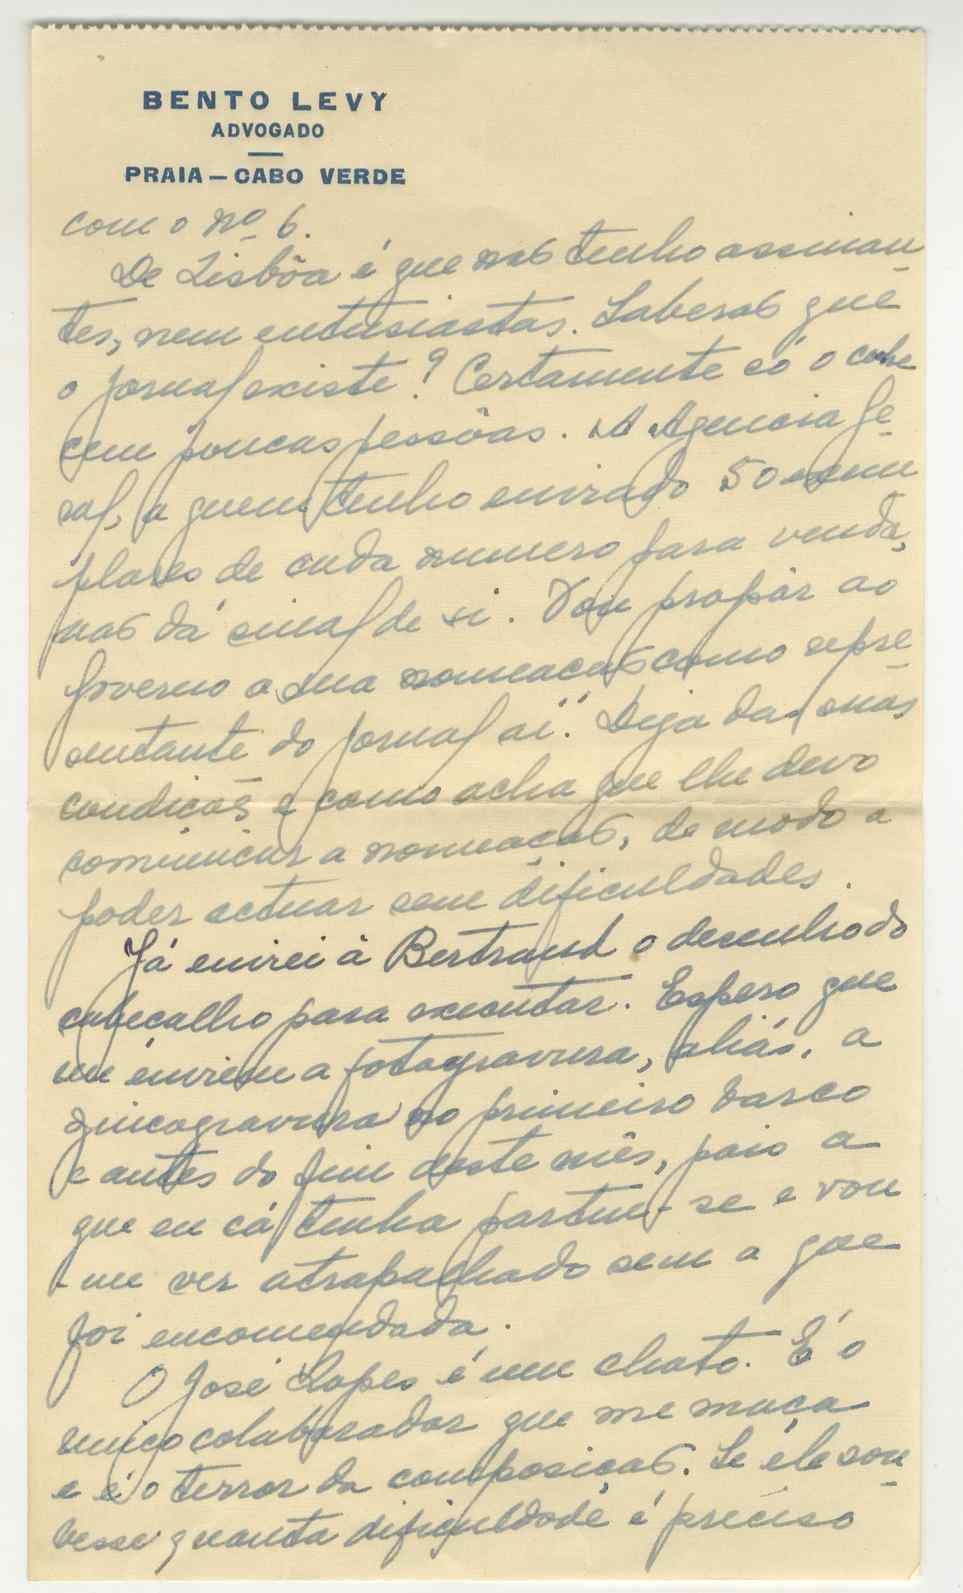 BENTO LEVY
ADVOGADO
PRAIA — CABO VERDE
com o nº 6.
De Lisbôa é que não tenho assinan-
tes, nem entusiastas. Saberão que
o jornal existe? Certamente só o conhe
cem poucas pessôas. A Agencia Ge-
ral, a quem tenho enviado 50 exem
plares de cada numero para venda,
não dá sinal de si. Vou propôr ao
Governo a sua nomeação como repre-
sentante do jornal aí. Diga das suas
condições e como acha que lhe devo
comunicar a nomeação, de modo a
poder actuar sem dificuldades.
Já enviei à Bertrand o desenho do
cabeçalho para executar. Espero que
me enviem a fotogravura, aliás, a
zincogravura no primeiro barco
e antes do fim deste mês, pois a
que eu cá tenha partiu-se e vou
-me ver atrapalhado sem a que
foi encomendada.
O José Lopes é um chato. É o
unico colaborador que me maça
e é o terror da composição. Se êle sou-
besse quanta dificuldade é preciso